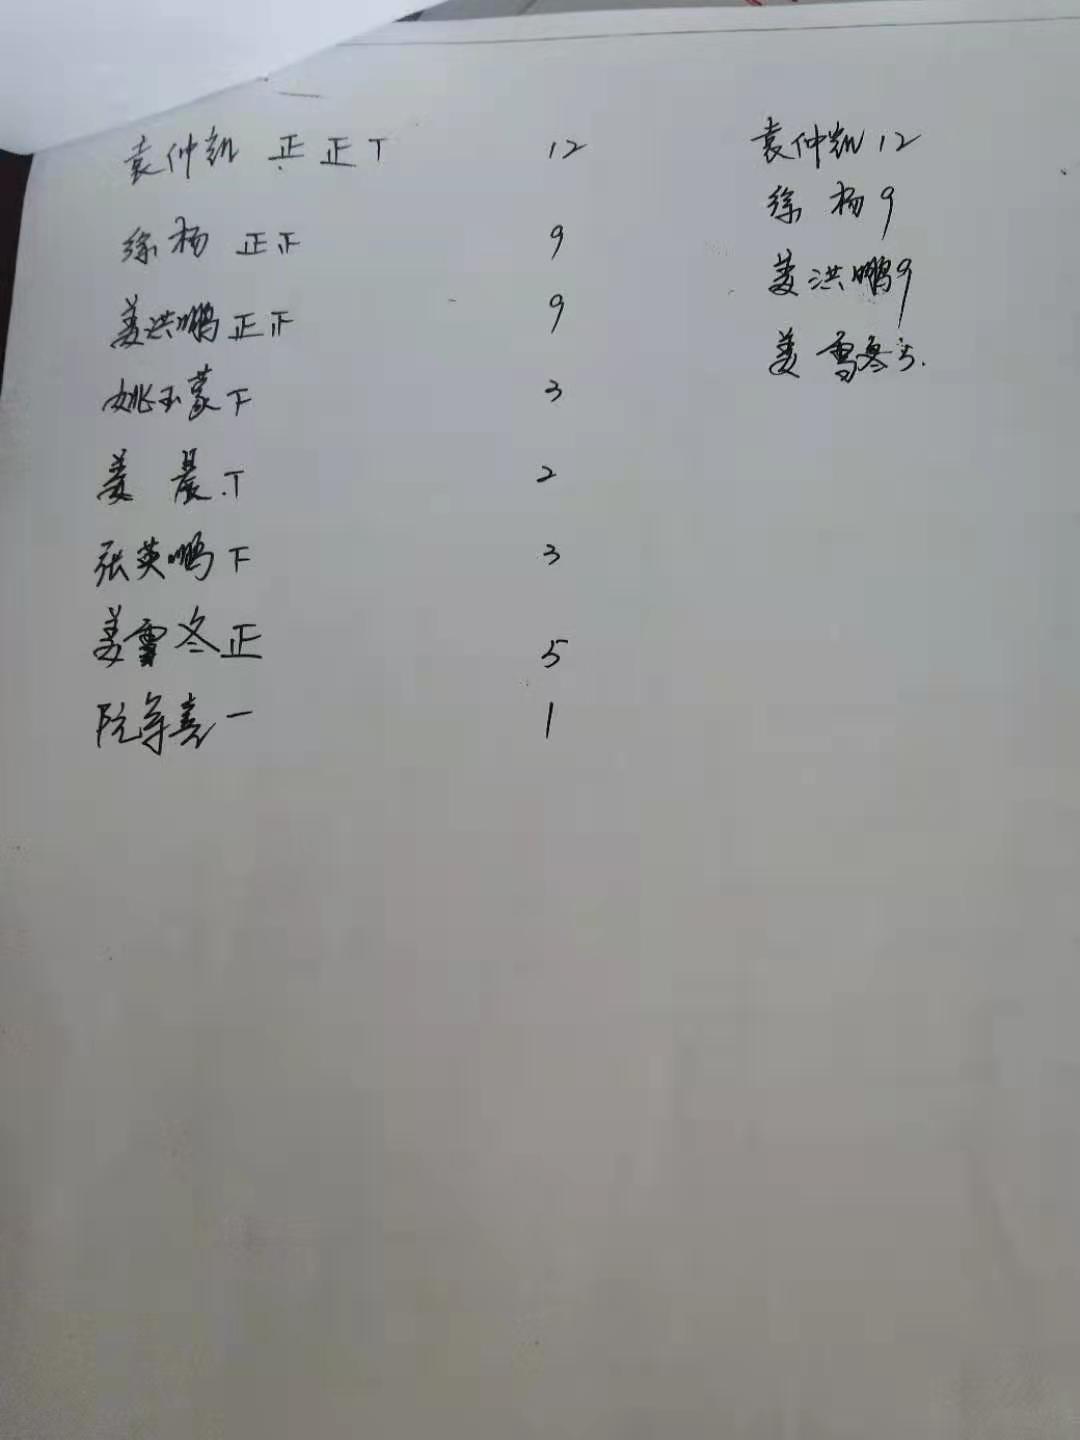 袁仲凯 正正丅 12
徐杨 正正 9
姜洪鹏 正正 9
姚玉蒙 下 3
姜晨 丅 2
张英鹏 下 3
姜雪冬 正 5
阮喜 一 1
袁仲凯 12
徐杨 9
姜洪鹏 9
姜雪冬 5.